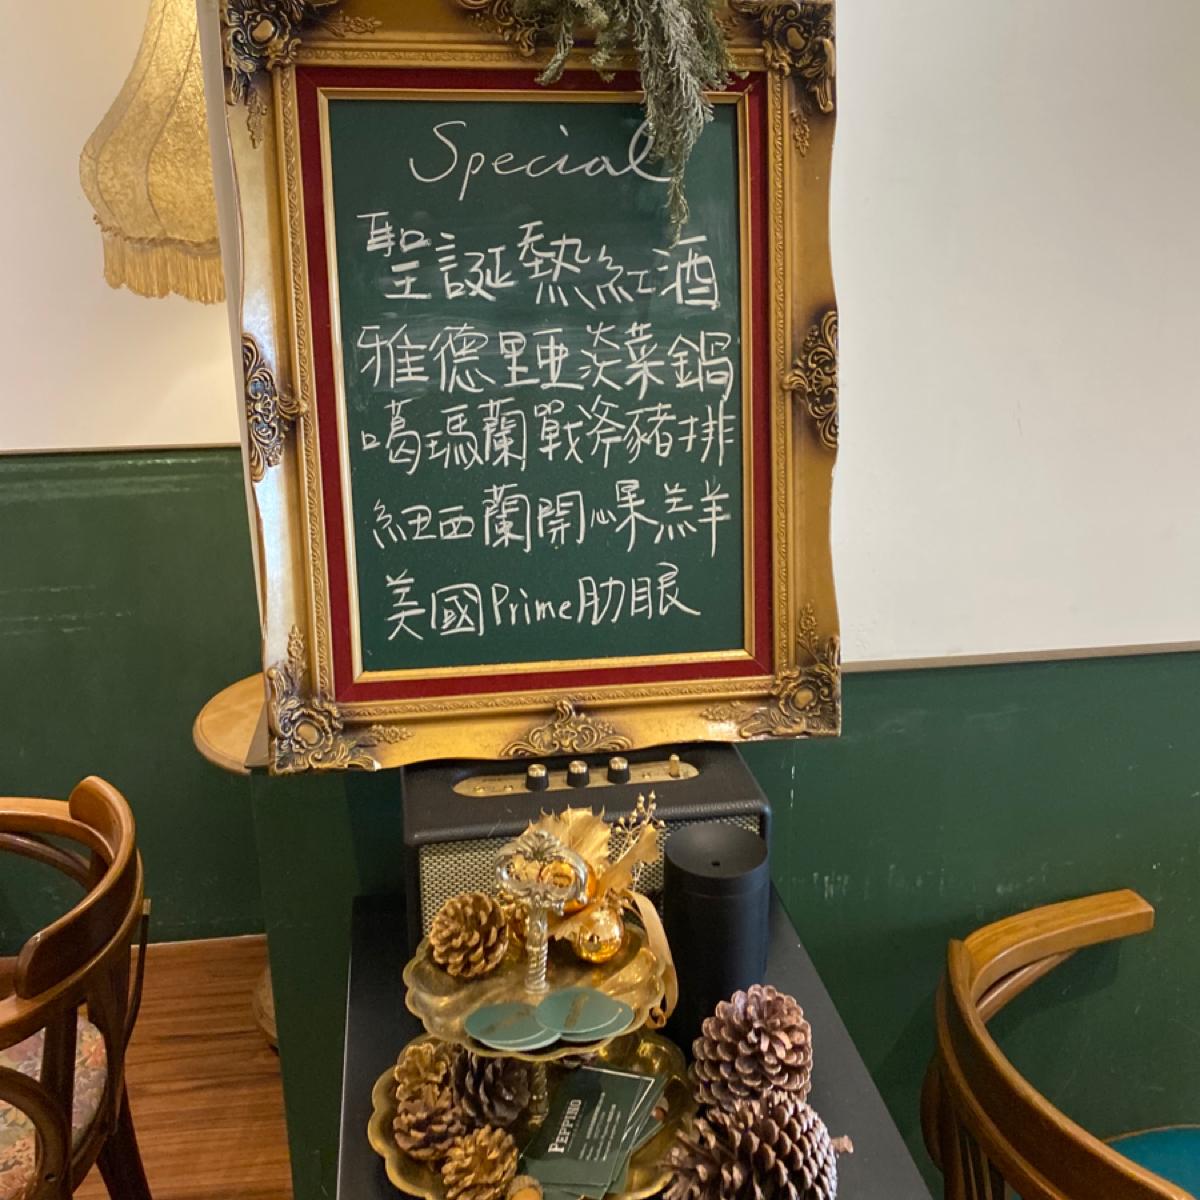 Special
聖誕熱紅酒
雅德里亞淡菜鍋
噶瑪蘭戰斧豬排
紐西蘭開心果羔羊
美國Prime肋眼
PEPPINO